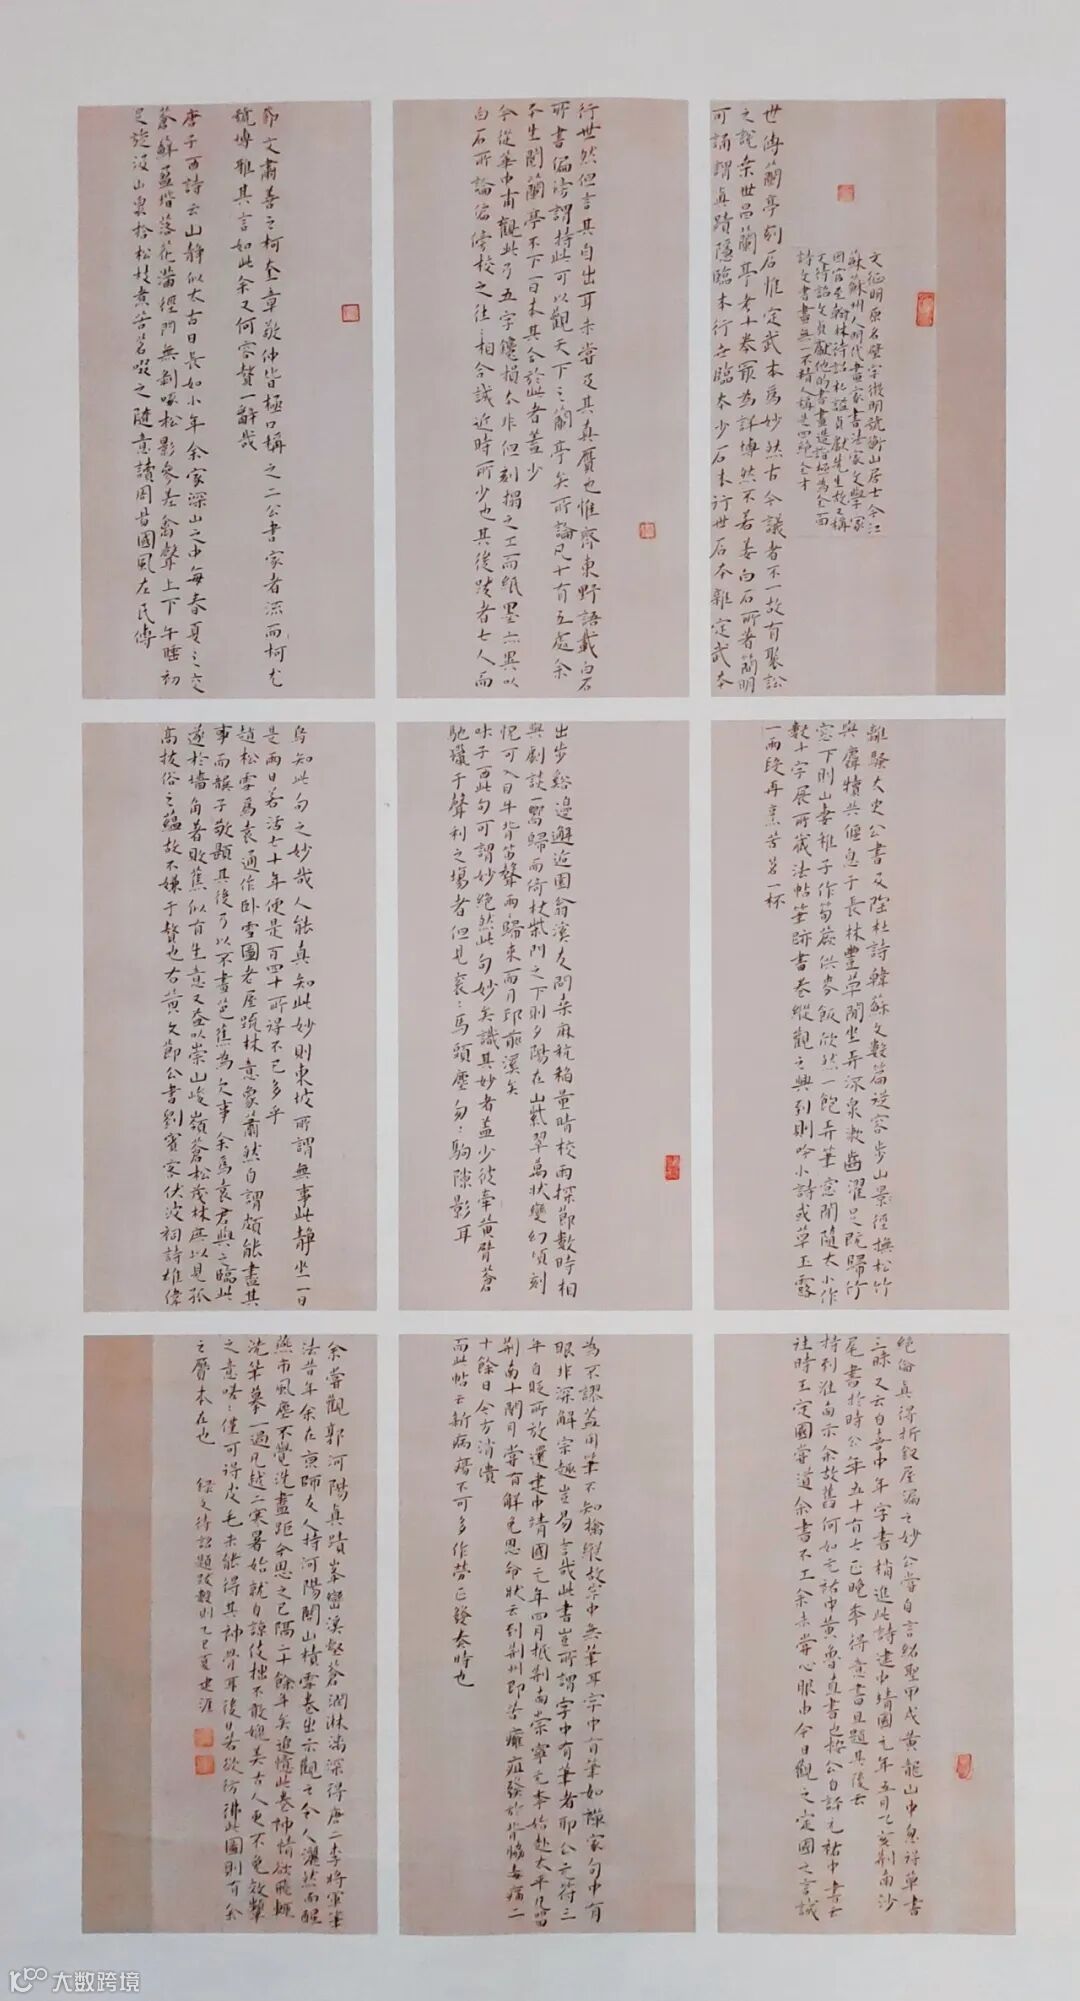 文征明原名壁字徵明號衡山居士今江
蘇蘇州人明代畫家書法家文學家
因官至翰林待詔私諡貞獻先生故又稱
文待詔文貞獻他的書畫造詣極為全面
詩文書畫無一不精人稱是四絕全才
世傳蘭亭刻石惟定武本為妙然古今議者不一故有聚訟
之說桑世昌蘭亭考十卷最為詳博然不若姜白石所著簡明
可誦謂真蹟隱臨本行世臨本少石本行世石本雜定武本
行世然但言其自出耳未嘗及其真贗也惟齊東野語載白石
所書偏旁謂持此可以觀天下之蘭亭矣所論凡十有五處余
平生閱蘭亭不下百本其合於此者蓋少
今從華中甫觀此乃五字鑱損本非但刻搨之工而紙墨亦異以
白石所論偏傍校之往往相合誠近時所少也其後跋者七人而
節文肅善之柯奎章敬仲皆極口稱之二公書家者流而柯尤
號博雅其言如此余又何容贅一辭哉
唐子西詩云山靜似太古日長如小年余家深山之中每春夏之交
蒼蘚盈堦落花滿徑門無剝啄松影參差禽聲上下午睡初
足旋汲山泉拾松枝煮苦茗啜之隨意讀周易國風左氏傳
離騷太史公書及陶杜詩韓蘇文數篇從容步山景徑撫松竹
與麛犢共偃息于長林豐草間坐弄流泉漱齒濯足既歸竹
窓下則山妻稚子作筍蕨供麥飯欣然一飽弄筆窓間隨大小作
數十字展所藏法帖筆跡書卷縱觀之興到則吟小詩或草玉露
一兩段再烹苦茗一杯
出步谿邊邂逅園翁溪友問桑麻秔稻量晴校雨探節數時相
與劇談一嚮歸而倚杖柴門之下則夕陽在山紫翠萬狀變幻頃刻
怳可入目牛背笛聲兩兩歸來而月印前溪矣
味子西此句可謂妙絕然此句妙矣識其妙者蓋少彼牽黃臂蒼
馳獵于聲利之場者但見衮衮馬頭塵匆匆駒隙影耳
烏知此句之妙哉人能真知此妙則東坡所謂無事此靜坐一日
是兩日若活七十年便是百四十所得不已多乎
趙松雪為袁通作臥雪圖老屋疏林意象蕭然自謂頗能盡其
事而龔子敬題其後乃以不畫芭蕉為欠事余為袁君與之臨此
遂於墻角著敗蕉似有生意又益以崇山峻嶺蒼松茂林庶以見孤
高拔俗之蘊故不嫌于贅也右黃文節公書劉賓客伏波祠詩雄偉
絕倫真得折釵屋漏之妙公嘗自言紹聖甲戌黃龍山中忽得草書
三昧又云自喜中年字書稍進此詩建中靖國元年五月乙亥荊南沙
尾書於時公年五十有七正晚年得意書且題其後云
持到淮南示余故舊何如元祐中黃魯直書也按公自評元祐中書云
往時王定國嘗道余書不工余未嘗心服由今日觀之定國之言誠
為不謬蓋用筆不知擒縱故字中無筆耳字中有筆如禪家句中有
眼非深解宗趣豈易言哉此書豈所謂字中有筆者耶公元符三
年自貶所放還建中靖國元年四月抵荊南崇寧元年始赴太平凡留
荊南十閱月嘗有解免恩命狀云到荊州即苦癰疽發於背脇毒痛二
十餘日今方消潰
而此帖云新病瘍不可多作勞正發奏時也
余嘗觀郭河陽真蹟峯巒溪壑蒼潤淋漓深得唐二李將軍筆
法昔年余在京師友人持河陽關山積雪卷出示觀之令人灑然而醒
燕市風塵不覺洗盡距今思之已隔二十餘年矣追憶此卷神情欲飛輒
洗筆摹一過凡越二寒暑始就自諒伎拙不敢媲美古人更不免效顰
之意嗟嗟僅可得皮毛未能得其神骨耳後日若欲彷彿此圖則有余
之贗本在也
錄文待詔題跋數則乙巳夏建涯
大数跨境